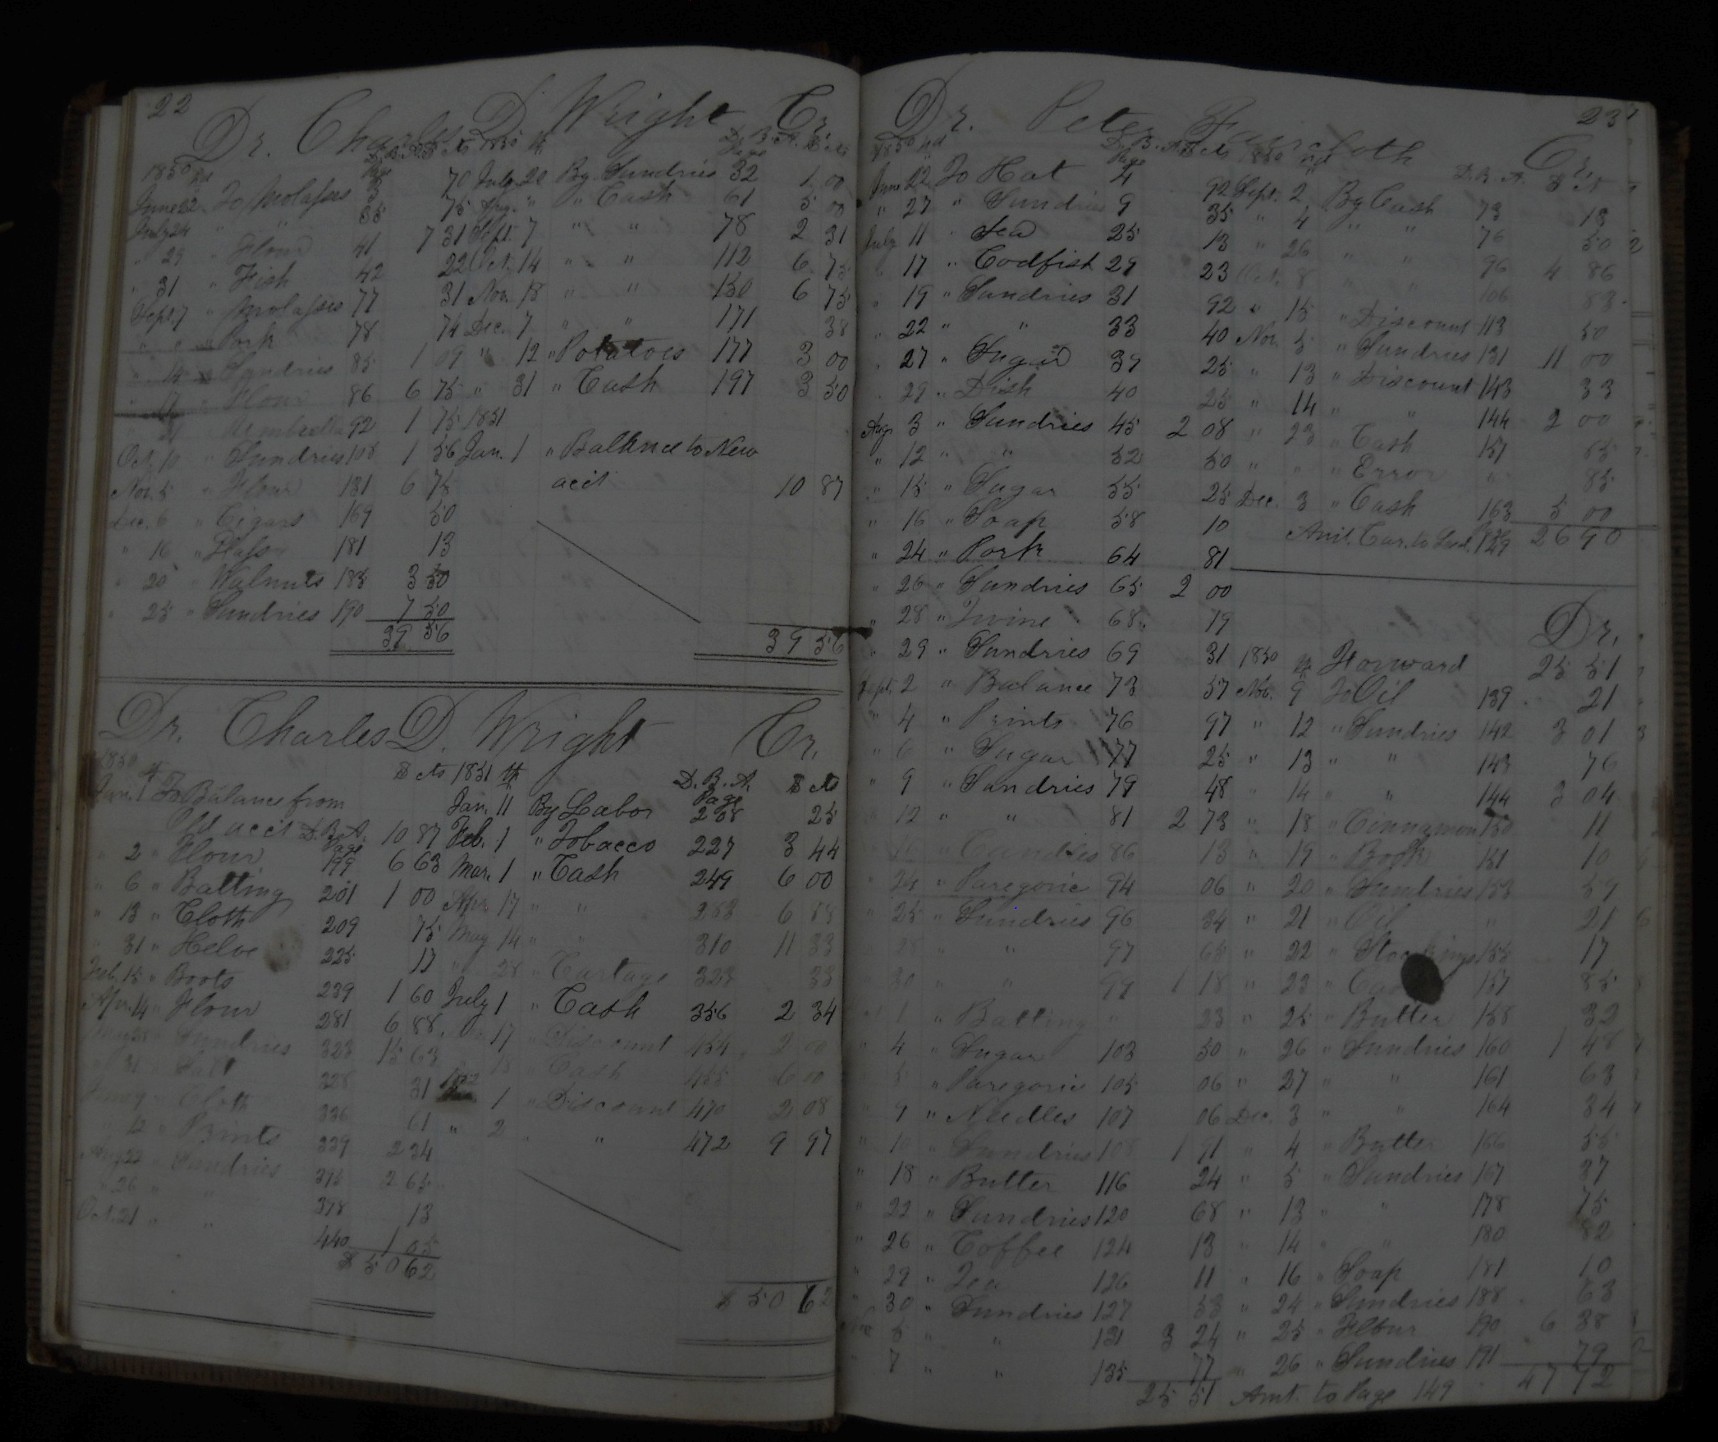 22
Dr. Charles D. Wright Cr.
1850 D.B.A. $ cts 1850 D.B.A. $ cts
June 22 To Molasses 70 July 20 By Sundries 32 1 00
July 24 " " 35 75 Aug. " " Cash 61 5 00
" 29 " Flour 41 7 31 Sept. 7 " " 78 2 31
" 31 " Fish 42 22 Oct. 14 " " 112 6 75
Sept. 7 " Molasses 77 31 Nov. 18 " " 150 6 75
" " " Pork 78 74 Dec. 7 " " 171 38
" " Sundries 85 1 09 " 12 " Potatoes 177 3 00
" " Flour 86 6 75 " 31 " Cash 197 3 50
" 21 " Umbrella 92 1 75 1851
Oct. 10 " Sundries 108 1 56 Jan. 1 " Ballance to New
Nov. 5 " Flour 131 6 75 acct 10 87
Dec. 6 " Cigars 169 50
" 16 " Glass 181 13
" 20 " Walnuts 185 3 50
" 25 " Sundries 190 7 50
39 56 39 56
Dr. Charles D. Wright Cr.
1850 $ cts 1851 D.B.A. Page $ cts
Jan. 1 To Balance from Jan. 11 By Labor 208 25
Old acct D.B.A. Page 10 87 Feb. 1 " Tobacco 227 3 44
" 2 " Flour 199 6 63 Mar. 1 " Cash 249 6 00
" 6 " Batting 201 1 00 Apr. 17 " " 6
" 13 " Cloth 209 75 May 14 " " 310 11 33
" 31 " Helve 225 17 " 28 " Cartage 323 33
Feb. 15 " Boots 239 1 60 July 1 " Cash 356 2 34
Apr. 14 " Flour 281 6 88 17 " Discount 454 2 00
Sundries 323 15 63 18 " Cash 455 6 00
" 31 " Salt 328 31 1852 Jan. 1 " Discount 470 2 08
" Cloth 336 61 " 2 " " 472 9 97
" 12 " Prints 339 2 34
Sundries 2 65
" 26 " " 378 13
Oct. 21 " " 440 1 05
$ 50 62 $ 50 62
23
Dr. Peter Cr.
1850 D.B.A. Page $ cts 1850 D.B.A. $ cts
June 22 To Hat 4 92 Sept. 2 By Cash 73 13
" 27 " Sundries 9 35 " 4 " " 76 50
July 11 " Tea 25 13 " 26 " " 96 4 86
" 17 " Codfish 29 23 Oct. 8 " " 106 83
" 19 " Sundries 31 92 " 15 " Discount 113 50
" 22 " " 33 40 Nov. 5 " Sundries 131 11 00
" 27 " Sugar 37 25 " 13 " Discount 143 33
" 29 " Dish 40 25 " 14 " " 144 2 00
Aug. 3 " Sundries 45 2 08 " 23 " Cash 157
" 12 " " 52 50 " " " Error " 85
" 15 " Sugar 55 25 Dec. 3 " Cash 163 5 00
" 16 " Soap 58 10 Amt. Car. to Led. 149 26 90
" 24 " Pork 64 81
" 26 " Sundries 65 2 00
" 28 " Twine 68 19 Dr.
" 29 " Sundries 69 31 1850 Forward 25 51
Sept. 2 " Balance 73 57 Nov. 9 To Oil 139 21
" 4 " Prints 76 97 " 12 " Sundries 142 3 01
" 6 " Sugar 77 25 " 13 " " 143 76
" 9 " Sundries 79 48 " 14 " " 144 3 04
" 12 " " 81 2 73 " 18 " Cinnamon 150 11
" Candles 86 13 " 19 " Book 151 10
" 24 " Paregoric 94 06 " 20 " Sundries 153 59
" 25 " Sundries 96 34 " 21 " Oil " 21
" 28 " " 97 65 " 22 " Stockings 155 17
" 30 " " 99 1 18 " 23 " Cash 157 85
" 1 " Batting " 23 " 25 " Butter 158 32
" 4 " Sugar 103 50 " 26 " Sundries 160 1 48
" 5 " Paregoric 105 06 " 27 " " 161 63
" 7 " Needles 107 06 Dec. 3 " " 164 34
" 10 " Sundries 108 1 91 " 4 " Butter 166 55
" 18 " Butter 116 24 " 5 " Sundries 167 37
" 22 " Sundries 120 68 " 13 " " 178 75
" 26 " Coffee 124 13 " 14 " " 180 82
" 29 " Tea 126 11 " 16 " Soap 181 10
" 30 " Sundries 127 53 " 24 " Sundries 188 63
Nov. 5 " " 131 3 24 " 25 " Flour 190 6 38
" 7 " " 135 77 " 26 " Sundries 191 79
25 51 Amt. to Page 149 47 72